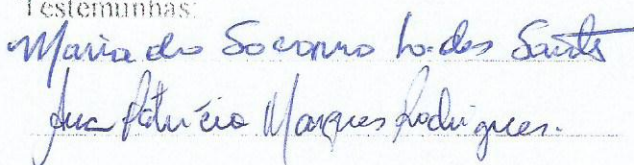 Testemunhas:
Maria do Socorro L. dos Santos
Ana Patrícia Marques Rodrigues.